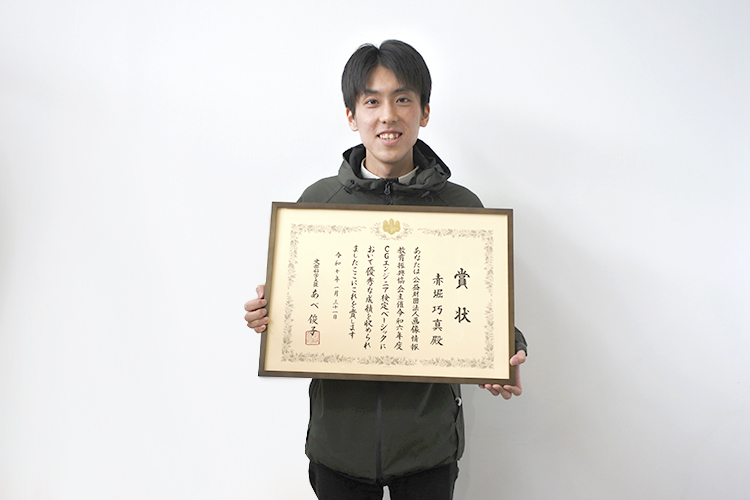 賞状
赤堀 巧真 殿
あなたは公益財団法人画像情報
教育振興協会主催令和六年度
CGエンジニア検定ベーシックに
おいて優秀な成績を収められ
ましたここにこれを賞します
令和七年一月三十一日
文部科学大臣 あべ 俊子